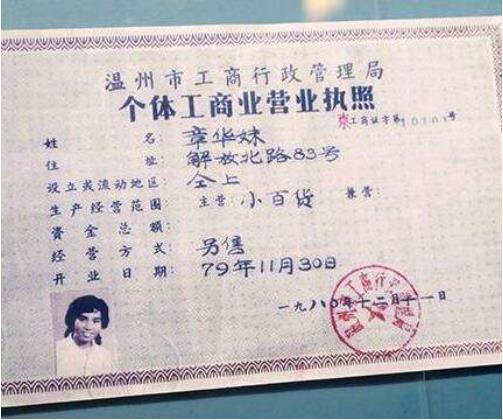 温州市工商行政管理局
个体工商业营业执照
东工商证字第10101号
姓 名：章华妹
住 址：解放北路83号
设立或流动地区：仝上
生产经营范围：主营：小百货 兼营：
资金总额：
经营方式：另售
开业日期：79年11月30日
一九八〇年十二月十一日